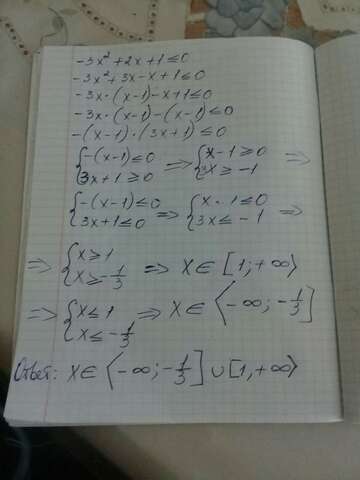 -3x²+2x+1≤0
-3x²+3x-x+1≤0
-3x·(x-1)-x+1≤0
-3x·(x-1)-(x-1)≤0
-(x-1)·(3x+1)≤0
{-(x-1)≤0 ⇒ {x-1≥0 ⇒
3x+1≥0 3x≥-1
{-(x-1)≤0 ⇒ {x-1≤0 ⇒
3x+1≤0 3x≤-1
⇒ {x≥1 ⇒ x∈[1;+∞⟩
x≥-1/3
⇒ {x≤1 ⇒ x∈⟨-∞;-1/3]
x≤-1/3
Ответ: x∈⟨-∞;-1/3]∪[1,+∞⟩